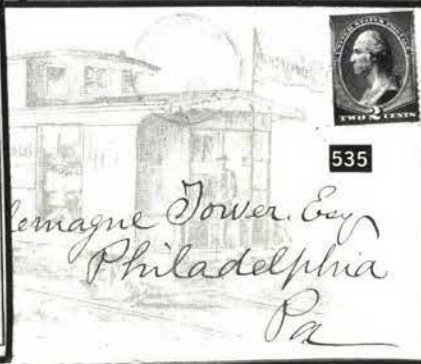 UNITED STATES POSTAGE
2
TWO CENTS
535
lemagne Tower. Esq
Philadelphia
Pa